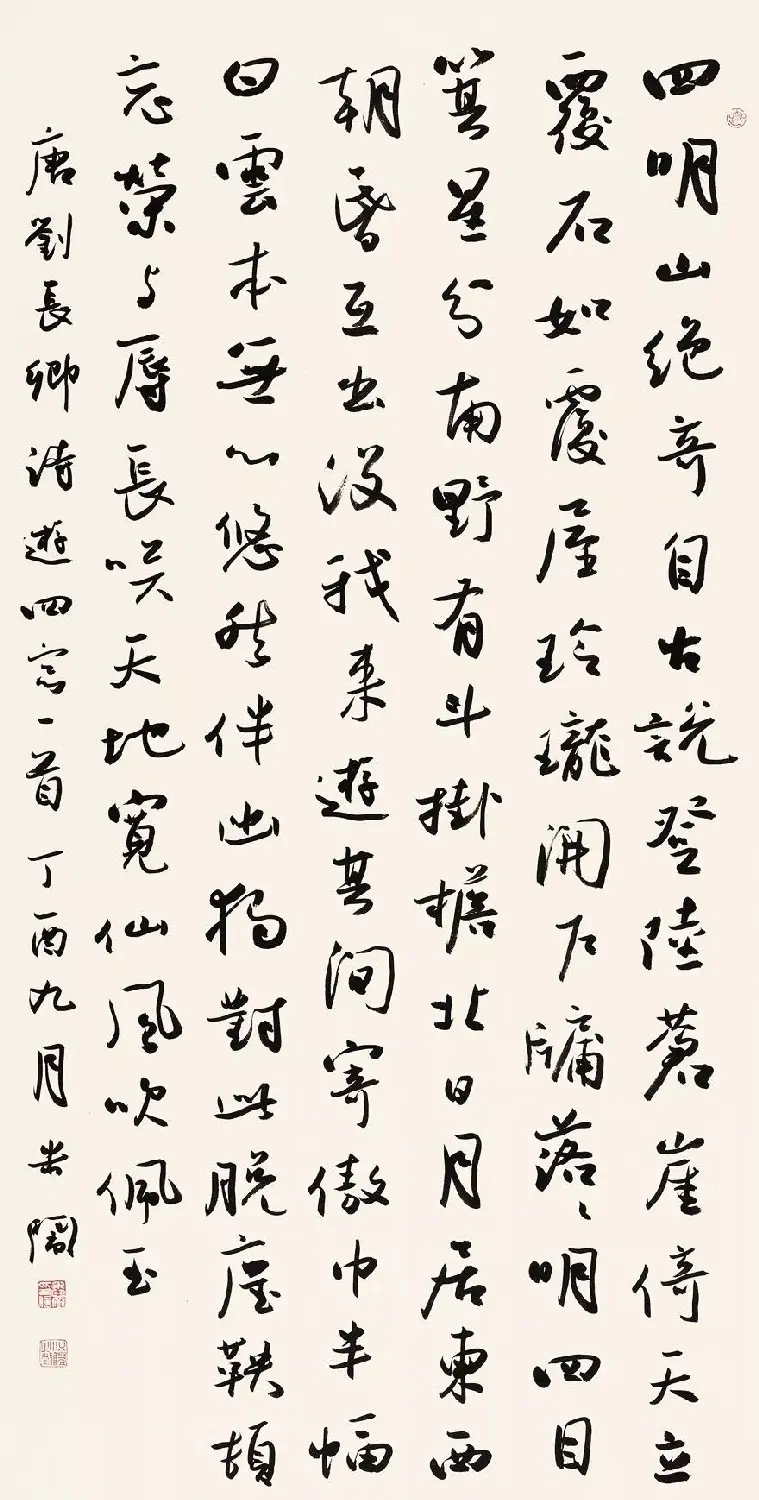 四明山絕奇自古說登陸蒼崖倚天立
覆石如覆屋玲瓏開戶牖落落明四目
箕星分南野有斗掛檐北日月居東西
朝昏互出沒我來遊其間寄傲巾半幅
白雲本無心悠然伴幽獨對此脫塵鞅頓
忘榮與辱長笑天地寬仙風吹佩玉
唐劉長卿詩遊四窗一首丁酉九月